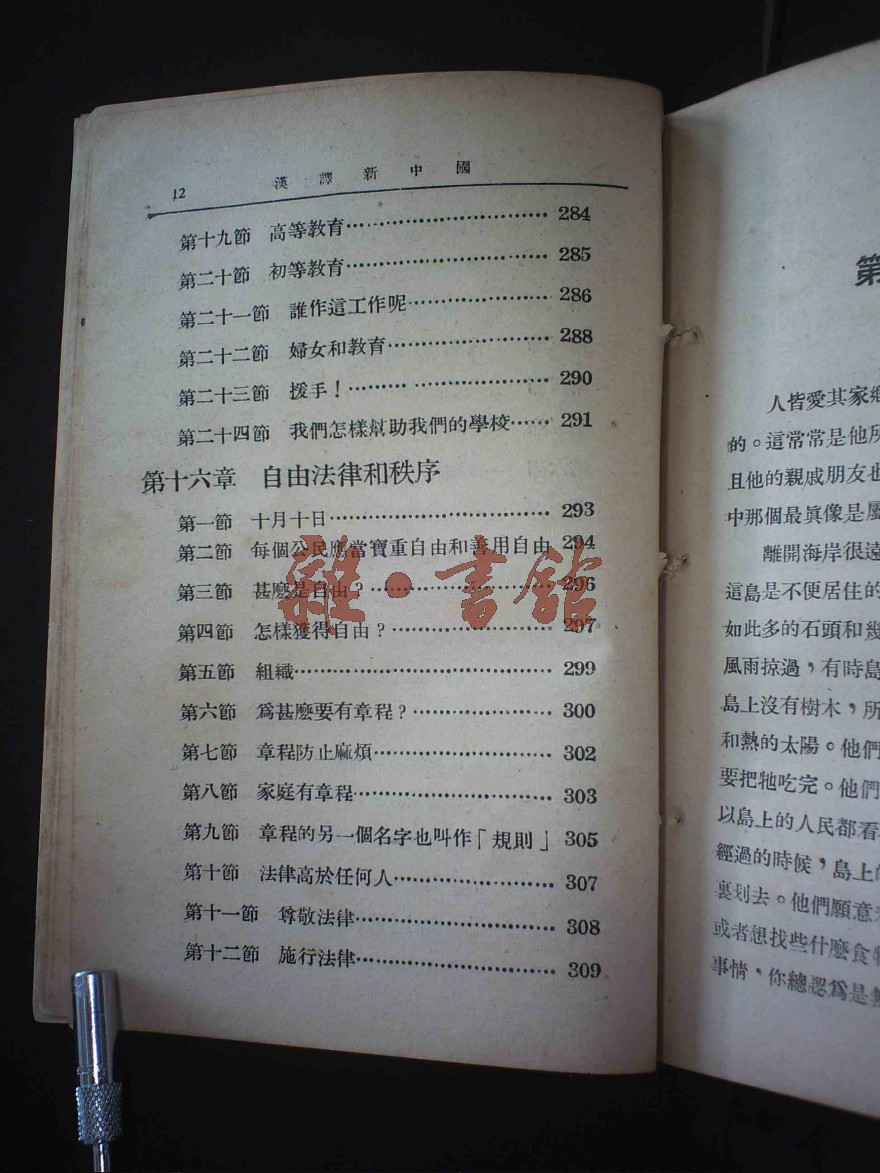 12 漢譯新中國
第十九節 高等教育⋯⋯⋯⋯⋯⋯⋯⋯⋯⋯ 284
第二十節 初等教育⋯⋯⋯⋯⋯⋯⋯⋯⋯⋯ 285
第二十一節 誰作這工作呢⋯⋯⋯⋯⋯⋯⋯ 286
第二十二節 婦女和教育⋯⋯⋯⋯⋯⋯⋯⋯ 288
第二十三節 援手！⋯⋯⋯⋯⋯⋯⋯⋯⋯⋯ 290
第二十四節 我們怎樣幫助我們的學校⋯⋯ 291
第十六章 自由法律和秩序
第一節 十月十日⋯⋯⋯⋯⋯⋯⋯⋯⋯⋯⋯ 293
第二節 每個公民應當寶重自由和善用自由 294
第三節 甚麽是自由？⋯⋯⋯⋯⋯⋯⋯⋯⋯ 296
第四節 怎樣獲得自由？⋯⋯⋯⋯⋯⋯⋯⋯ 297
第五節 組織⋯⋯⋯⋯⋯⋯⋯⋯⋯⋯⋯⋯⋯ 299
第六節 爲甚麽要有章程？⋯⋯⋯⋯⋯⋯⋯ 300
第七節 章程防止麻煩⋯⋯⋯⋯⋯⋯⋯⋯⋯ 302
第八節 家庭有章程⋯⋯⋯⋯⋯⋯⋯⋯⋯⋯ 303
第九節 章程的另一個名字也叫作「規則」 305
第十節 法律高於任何人⋯⋯⋯⋯⋯⋯⋯⋯ 307
第十一節 尊敬法律⋯⋯⋯⋯⋯⋯⋯⋯⋯⋯ 308
第十二節 施行法律⋯⋯⋯⋯⋯⋯⋯⋯⋯⋯ 309
雜·書館
第
人皆愛其家鄉
的。這常常是他所
且他的親戚朋友也
中那個最眞像是屬
離開海岸很遠
這島是不便居住的
如此多的石頭和幾
風雨掠過，有時島
島上沒有樹木，所
和熱的太陽。他們
要把牠吃完。他們
以島上的人民都看
經過的時候，島上的
裏划去。他們願意
或者想找些什麽食物
事情，你總認爲是無